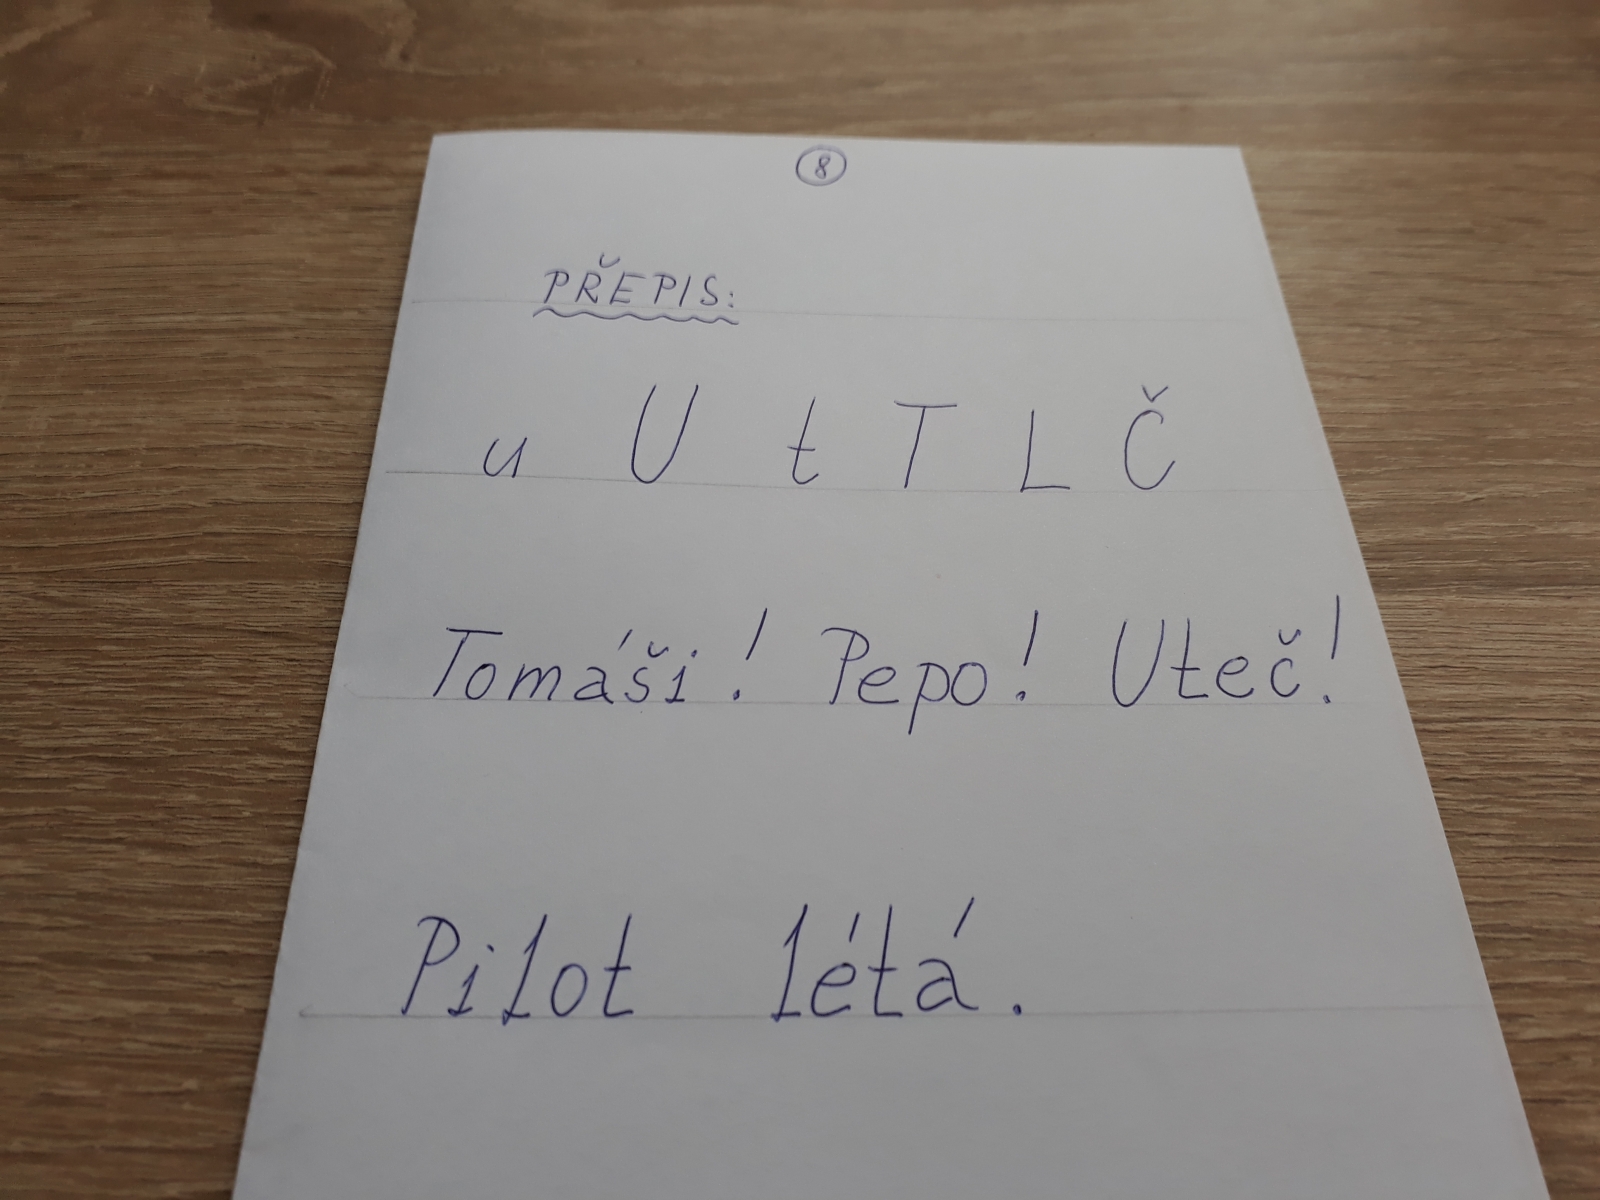 8
PŘEPIS:
u U t T L Č
Tomáši! Pepo! Uteč!
Pilot létá.